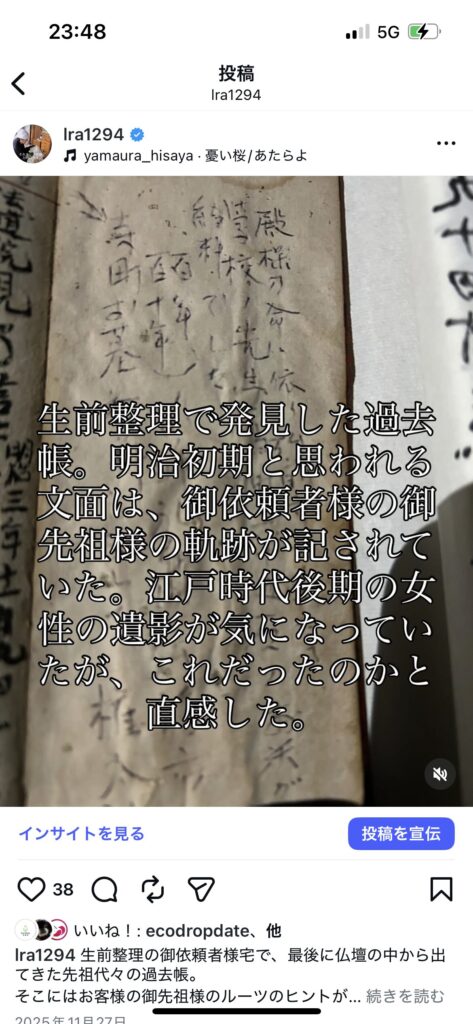 23:48
5G
投稿
lra1294
lra1294
yamaura_hisaya · 憂い桜/あたらよ
殿様の命に依
学校ノ先生
百年
百十年
生前整理で発見した過去
帳。明治初期と思われる
文面は、御依頼者様の御
先祖様の軌跡が記されて
いた。江戸時代後期の女
性の遺影が気になってい
たが、これだったのかと
直感した。
インサイトを見る
投稿を宣伝
38
いいね!: ecodropdate、他
lra1294 生前整理の御依頼者様宅で、最後に仏壇の中から出
てきた先祖代々の過去帳。
そこにはお客様の御先祖様のルーツのヒントが... 続きを読む
2025年11月27日